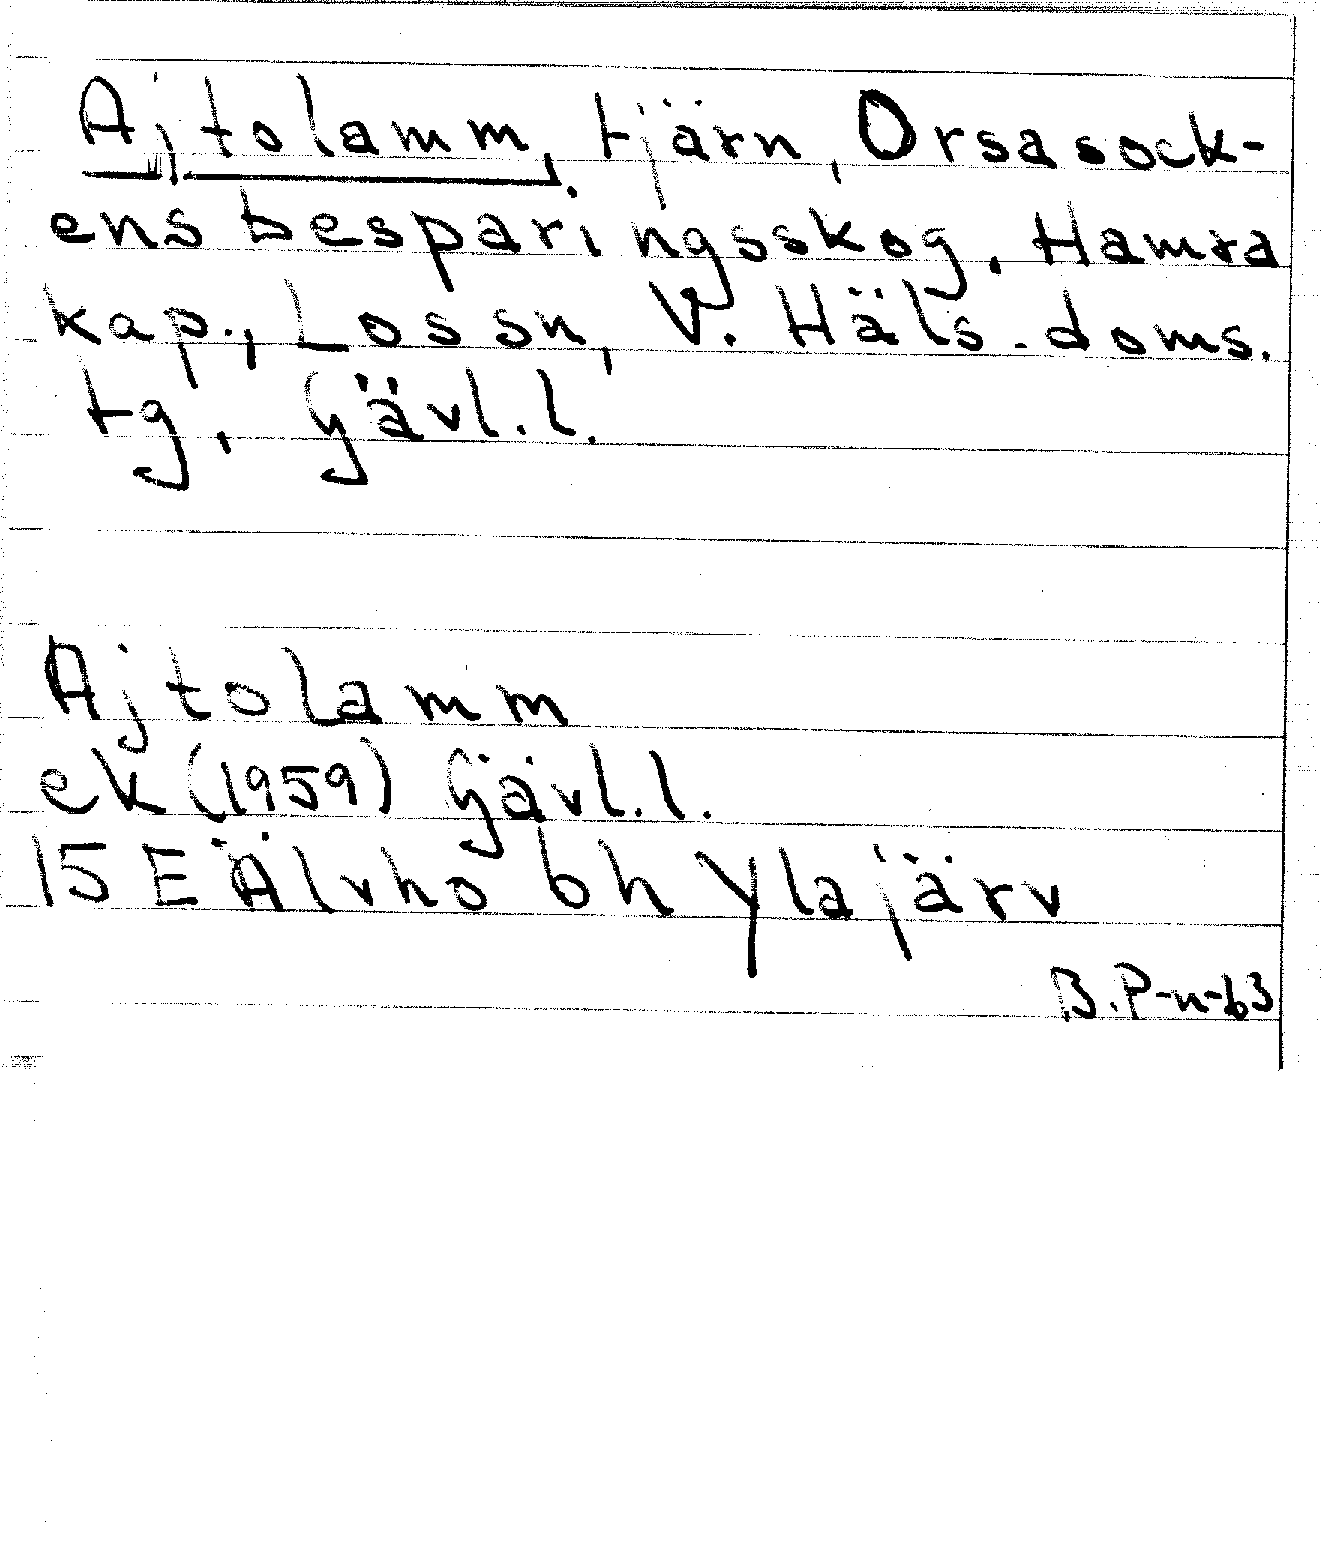 Ajtolamm, tjärn, Orsasock-
ens besparingsskog, Hamra
kap., Los sn, V. Häls. doms.
tg, Gävl.l.
Ajtolamm
ek (1959) Gävl.l.
15 E Älvho bh Ylajärv
B. P-n-63